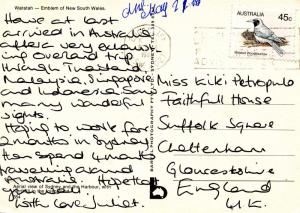 Waratah — Emblem of New South Wales.
Have at last
arrived in Australia
after a very exhaust-
ing overland trip
through
Thailand
Malaysia, Singapore
and Indonesia. Saw
many wonderful
sights.
Hoping to work for
2 months in Sydney
then spend 4 months
travelling around
Australia. Hope to
you
With love Juliet.
Aerial view of Sydney and the Harbour, with
AUSTRALIA
45c
Miss Kiki Petropulo
Faithfull House
Suffolk Square
Cheltenham
Gloucestershire
England
U.K.